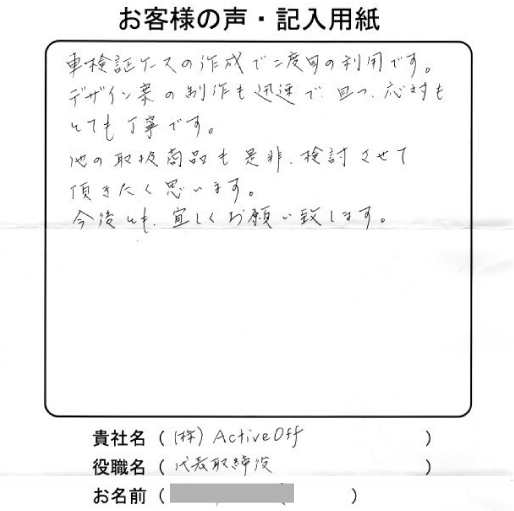 お客様の声・記入用紙
車検証ケースの作成で二度目の利用です。
デザイン案の制作も迅速で、且つ、応対も
とても丁寧です。
他の取扱商品も是非、検討させて
頂きたく思います。
今後とも、宜しくお願い致します。
貴社名（ (株) ActiveOff ）
役職名（ 代表取締役 ）
お名前（ ）